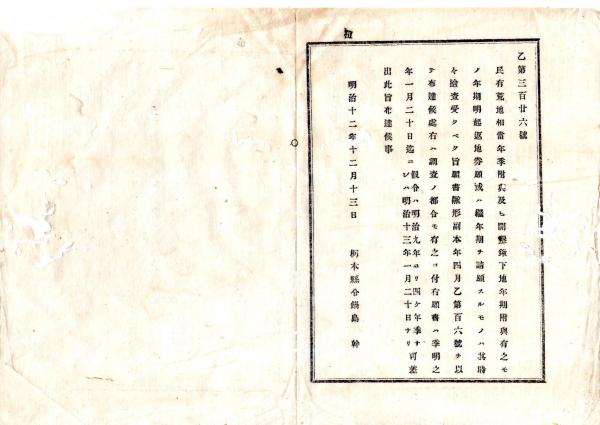 乙第三百廿六號
民有荒地相當年季附與及ヒ開墾鍬下地年期附與有之モ
ノ年期明起返地券願或ハ繼年期ヲ請願スルモノハ其時
々撿査受クベク旨願書雛形副本年四月乙第百六號ヲ以
テ布達候處右ハ調査ノ都合モ有之ニ付右願書ハ季明之
年一月二十日迄ニ假令ハ明治九年ヨリ四ケ年季ナ
レハ明治十三年一月二十日ナリ可差
出此旨布達候事
明治十二年十二月十三日
栃木縣令鍋島 幹